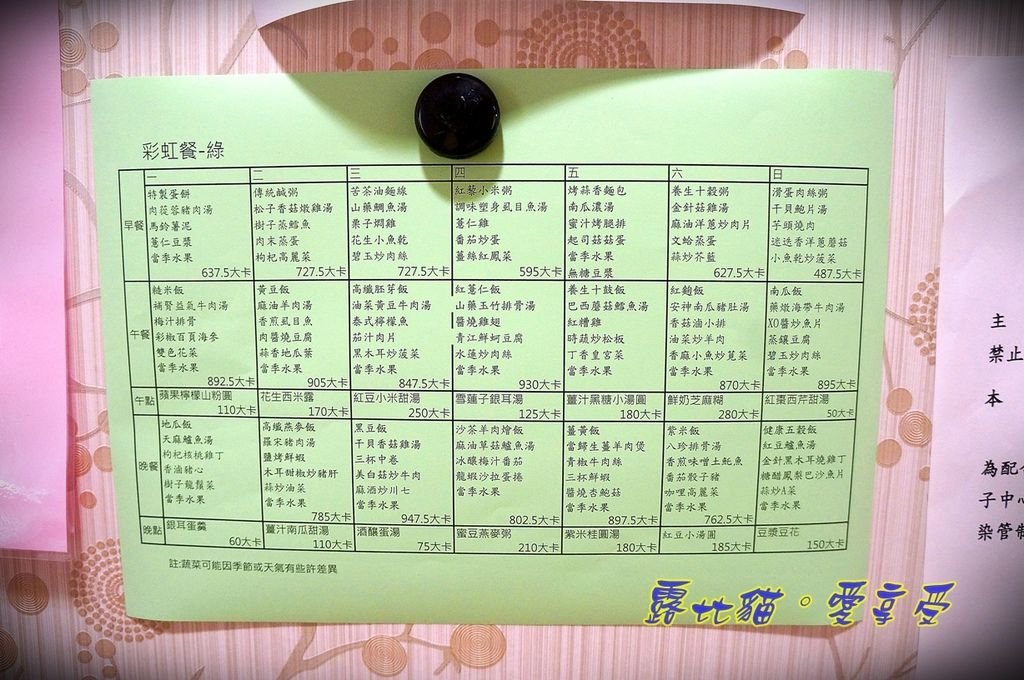 彩虹餐-綠
一 二 三 四 五 六 日
早餐
特製蛋餅
肉蓯蓉豬肉湯
馬鈴薯泥
薏仁豆漿
當季水果
637.5大卡
傳統鹹粥
松子香菇燉雞湯
樹子蒸鱈魚
肉末蒸蛋
枸杞高麗菜
727.5大卡
苦茶油麵線
山藥鯛魚湯
栗子燜雞
花生小魚乾
碧玉炒肉絲
727.5大卡
紅藜小米粥
調味塑身虱目魚湯
薏仁雞
番茄炒蛋
薑絲紅鳳菜
595大卡
烤蒜香麵包
南瓜濃湯
蜜汁烤腿排
起司菇菇蛋
當季水果
無糖豆漿
養生十穀粥
金針菇雞湯
麻油洋蔥炒肉片
文蛤蒸蛋
蒜炒芥藍
627.5大卡
滑蛋肉絲粥
干貝鮑片湯
芋頭燒肉
迷迭香洋蔥蘑菇
小魚乾炒菠菜
487.5大卡
午餐
糙米飯
補腎益氣牛肉湯
梅汁排骨
彩椒百頁海參
雙色花菜
當季水果
892.5大卡
黃豆飯
麻油羊肉湯
香煎虱目魚
肉醬燒豆腐
蒜香地瓜葉
當季水果
905大卡
高纖胚芽飯
油菜黃豆牛肉湯
泰式檸檬魚
茄汁肉片
黑木耳炒菠菜
當季水果
847.5大卡
紅薏仁飯
山藥玉竹排骨湯
醬燒雞翅
青江鮮蚵豆腐
水蓮炒肉絲
當季水果
930大卡
養生十穀飯
巴西蘑菇鱸魚湯
紅糟雞
時蔬炒松板
丁香皇宮菜
當季水果
紅麴飯
安神南瓜豬肚湯
香菇滷小排
油菜炒羊肉
香麻小魚炒莧菜
當季水果
870大卡
南瓜飯
藥燉海帶牛肉湯
XO醬炒魚片
蒸鑲豆腐
碧玉炒肉絲
當季水果
895大卡
午點
蘋果檸檬山粉圓
110大卡
花生西米露
170大卡
紅豆小米甜湯
250大卡
雪蓮子銀耳湯
125大卡
薑汁黑糖小湯圓
180大卡
鮮奶芝麻糊
280大卡
紅棗西芹甜湯
50大卡
晚餐
地瓜飯
天麻鱸魚湯
枸杞核桃雞丁
香滷豬心
樹子龍鬚菜
當季水果
高纖燕麥飯
羅宋豬肉湯
鹽烤鮮蝦
木耳甜椒炒豬肝
蒜炒油菜
當季水果
785大卡
黑豆飯
干貝香菇雞湯
三杯中卷
美白菇炒牛肉
麻酒炒川七
當季水果
947.5大卡
沙茶羊肉燴飯
麻油草菇鱸魚湯
冰釀梅汁番茄
龍蝦沙拉蛋捲
當季水果
802.5大卡
薑黃飯
當歸生薑羊肉煲
青椒牛肉絲
三杯鮮蝦
醬燒杏鮑菇
當季水果
897.5大卡
紫米飯
八珍排骨湯
香煎味噌土魠魚
番茄骰子豬
咖哩高麗菜
當季水果
762.5大卡
健康五穀飯
紅豆鱸魚湯
金針黑木耳燒雞丁
糖醋鳳梨巴沙魚片
蒜炒A菜
當季水果
晚點
銀耳蛋羹
60大卡
薑汁南瓜甜湯
110大卡
酒釀蛋湯
75大卡
蜜豆燕麥粥
210大卡
紫米桂圓湯
180大卡
紅豆小湯圓
185大卡
豆漿豆花
150大卡
註:蔬菜可能因季節或天氣有些許差異
主
禁止
本
為配合
子中心
染管制
露比貓。愛享受